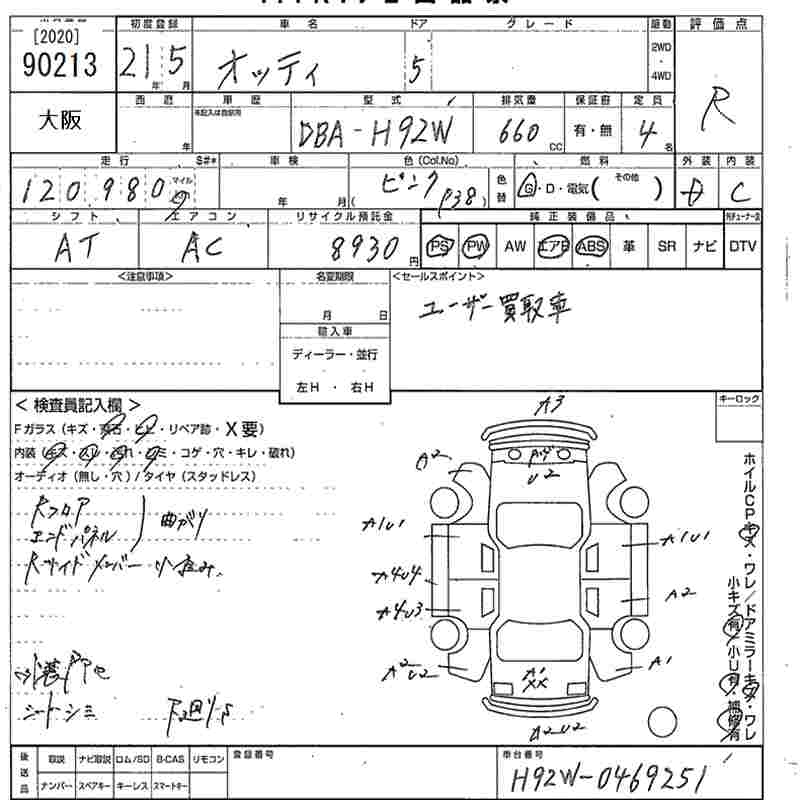 [2020]
90213
大阪
初度登録 車名 ドア グレード 駆動 評価点
21 年 5 月 オッティ 5 2WD・4WD R
西暦 車歴 型式 排気量 保証書 定員
年 未記入は自家用 DBA-H92W 660 CC 有・無 4 名
走行 S#* 車検 色(Col.No) 燃料 外装 内装
120,980 マイル 年 月( ピンク P38) 色替 G・D・電気( その他 ) D C
シフト エアコン リサイクル預託金 純正装備品
AT AC 8930 円 PS PW AW エアB ABS 革 SR ナビ DTV
<注意事項> 名変期限 <セールスポイント>
月 日
ユーザー買取車
輸入車
ディーラー・並行
左H・右H
<検査員記入欄> キーロック
Fガラス(キズ・飛石・ヒビ・リペア跡・X要)
内装(キズ・スレ・汚れ・シミ・コゲ・穴・キレ・破れ)
オーディオ(無し・穴)/タイヤ(スタッドレス)
Rフロア
エンドパネル 曲がり
Rサイドメンバー 小歪み
シートシミ 下廻りS
A3
A4
U2
A2
A1U1 A1U1
A4U4
A4U3 A2
A2U2 A1
A1
XX
A2U2
ホイルCPキズ・ワレ/ドアミラーキズ・ワレ
小キズ有/小U有・補修有
後送品 取説 ナビ取説 ロム/SD B-CAS リモコン 登録番号 車台番号
ナンバー スペアキー キーレス スマートキー H92W-0469251